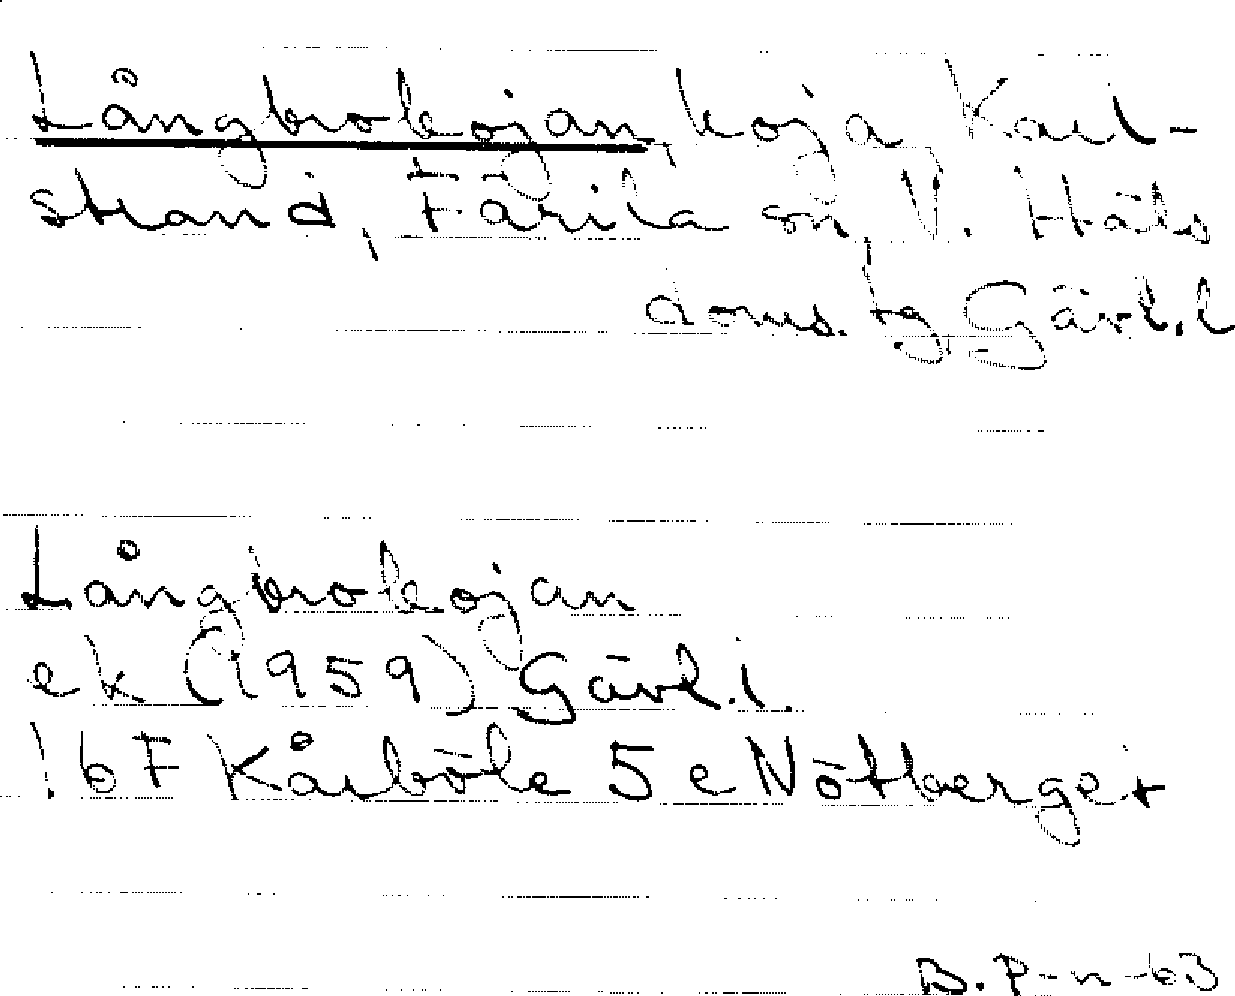 Långbrokojan, koja, Karl-
strand, Färila sn, V. Häls
doms. tg, Gävl. l
Långbrokojan
ek (1959) Gävl. l.
! 6 F Kårböle 5 e Nötberget
B. P-n -63